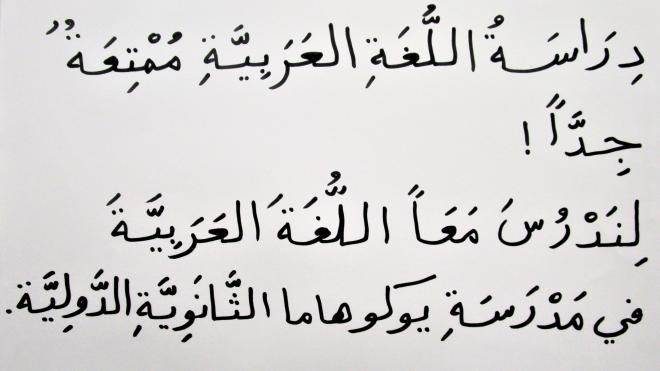 دِرَاسَةُ اللُّغَةِ العَرَبِيَّةِ مُمْتِعَةٌ
جِدَّاً !
لِنَدْرُسَ مَعَاً اللُّغَةَ العَرَبِيَّةَ
في مَدْرَسَةِ يوكوهاما الثَّانَوِيَّةِ الدَّوْلِيَّة.